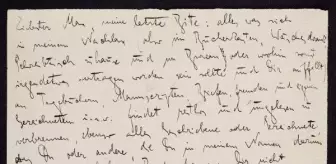 Liebster Max, meine letzte Bitte: alles, was sich
in meinem Nachlass (also im Bücherkasten, Wäscheschrank,
Schreibtisch zuhause und im Bureau, oder wohin sonst
irgendetwas vertragen worden sein sollte und Dir auffällt)
an Tagebüchern, Manuscripten, Briefen, fremden und eignen,
Gezeichnetem u.s.w. findet restlos und ungelesen zu
verbrennen, ebenso alles Geschriebene oder Gezeichnete,
das Du oder andre, die Du in meinem Namen darum